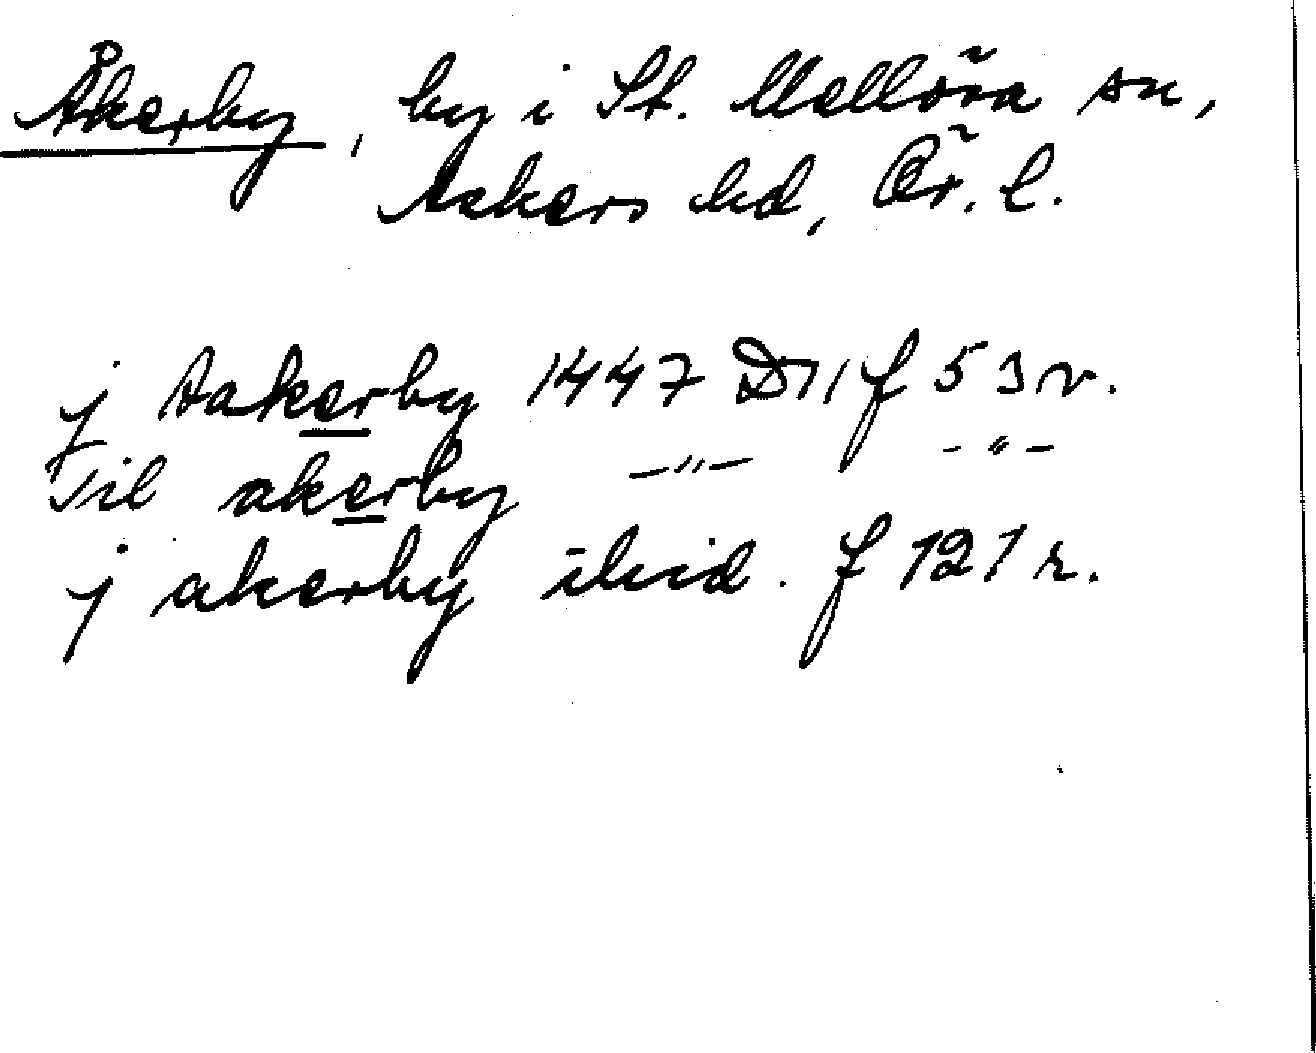 Åkerby, by i St. Mellösa sn,
Askers hd, Ör. l.
j Aakerby 1447 D 11 f 53 v.
Til akerby —"— -"-
j akerby ibid. f 121 r.